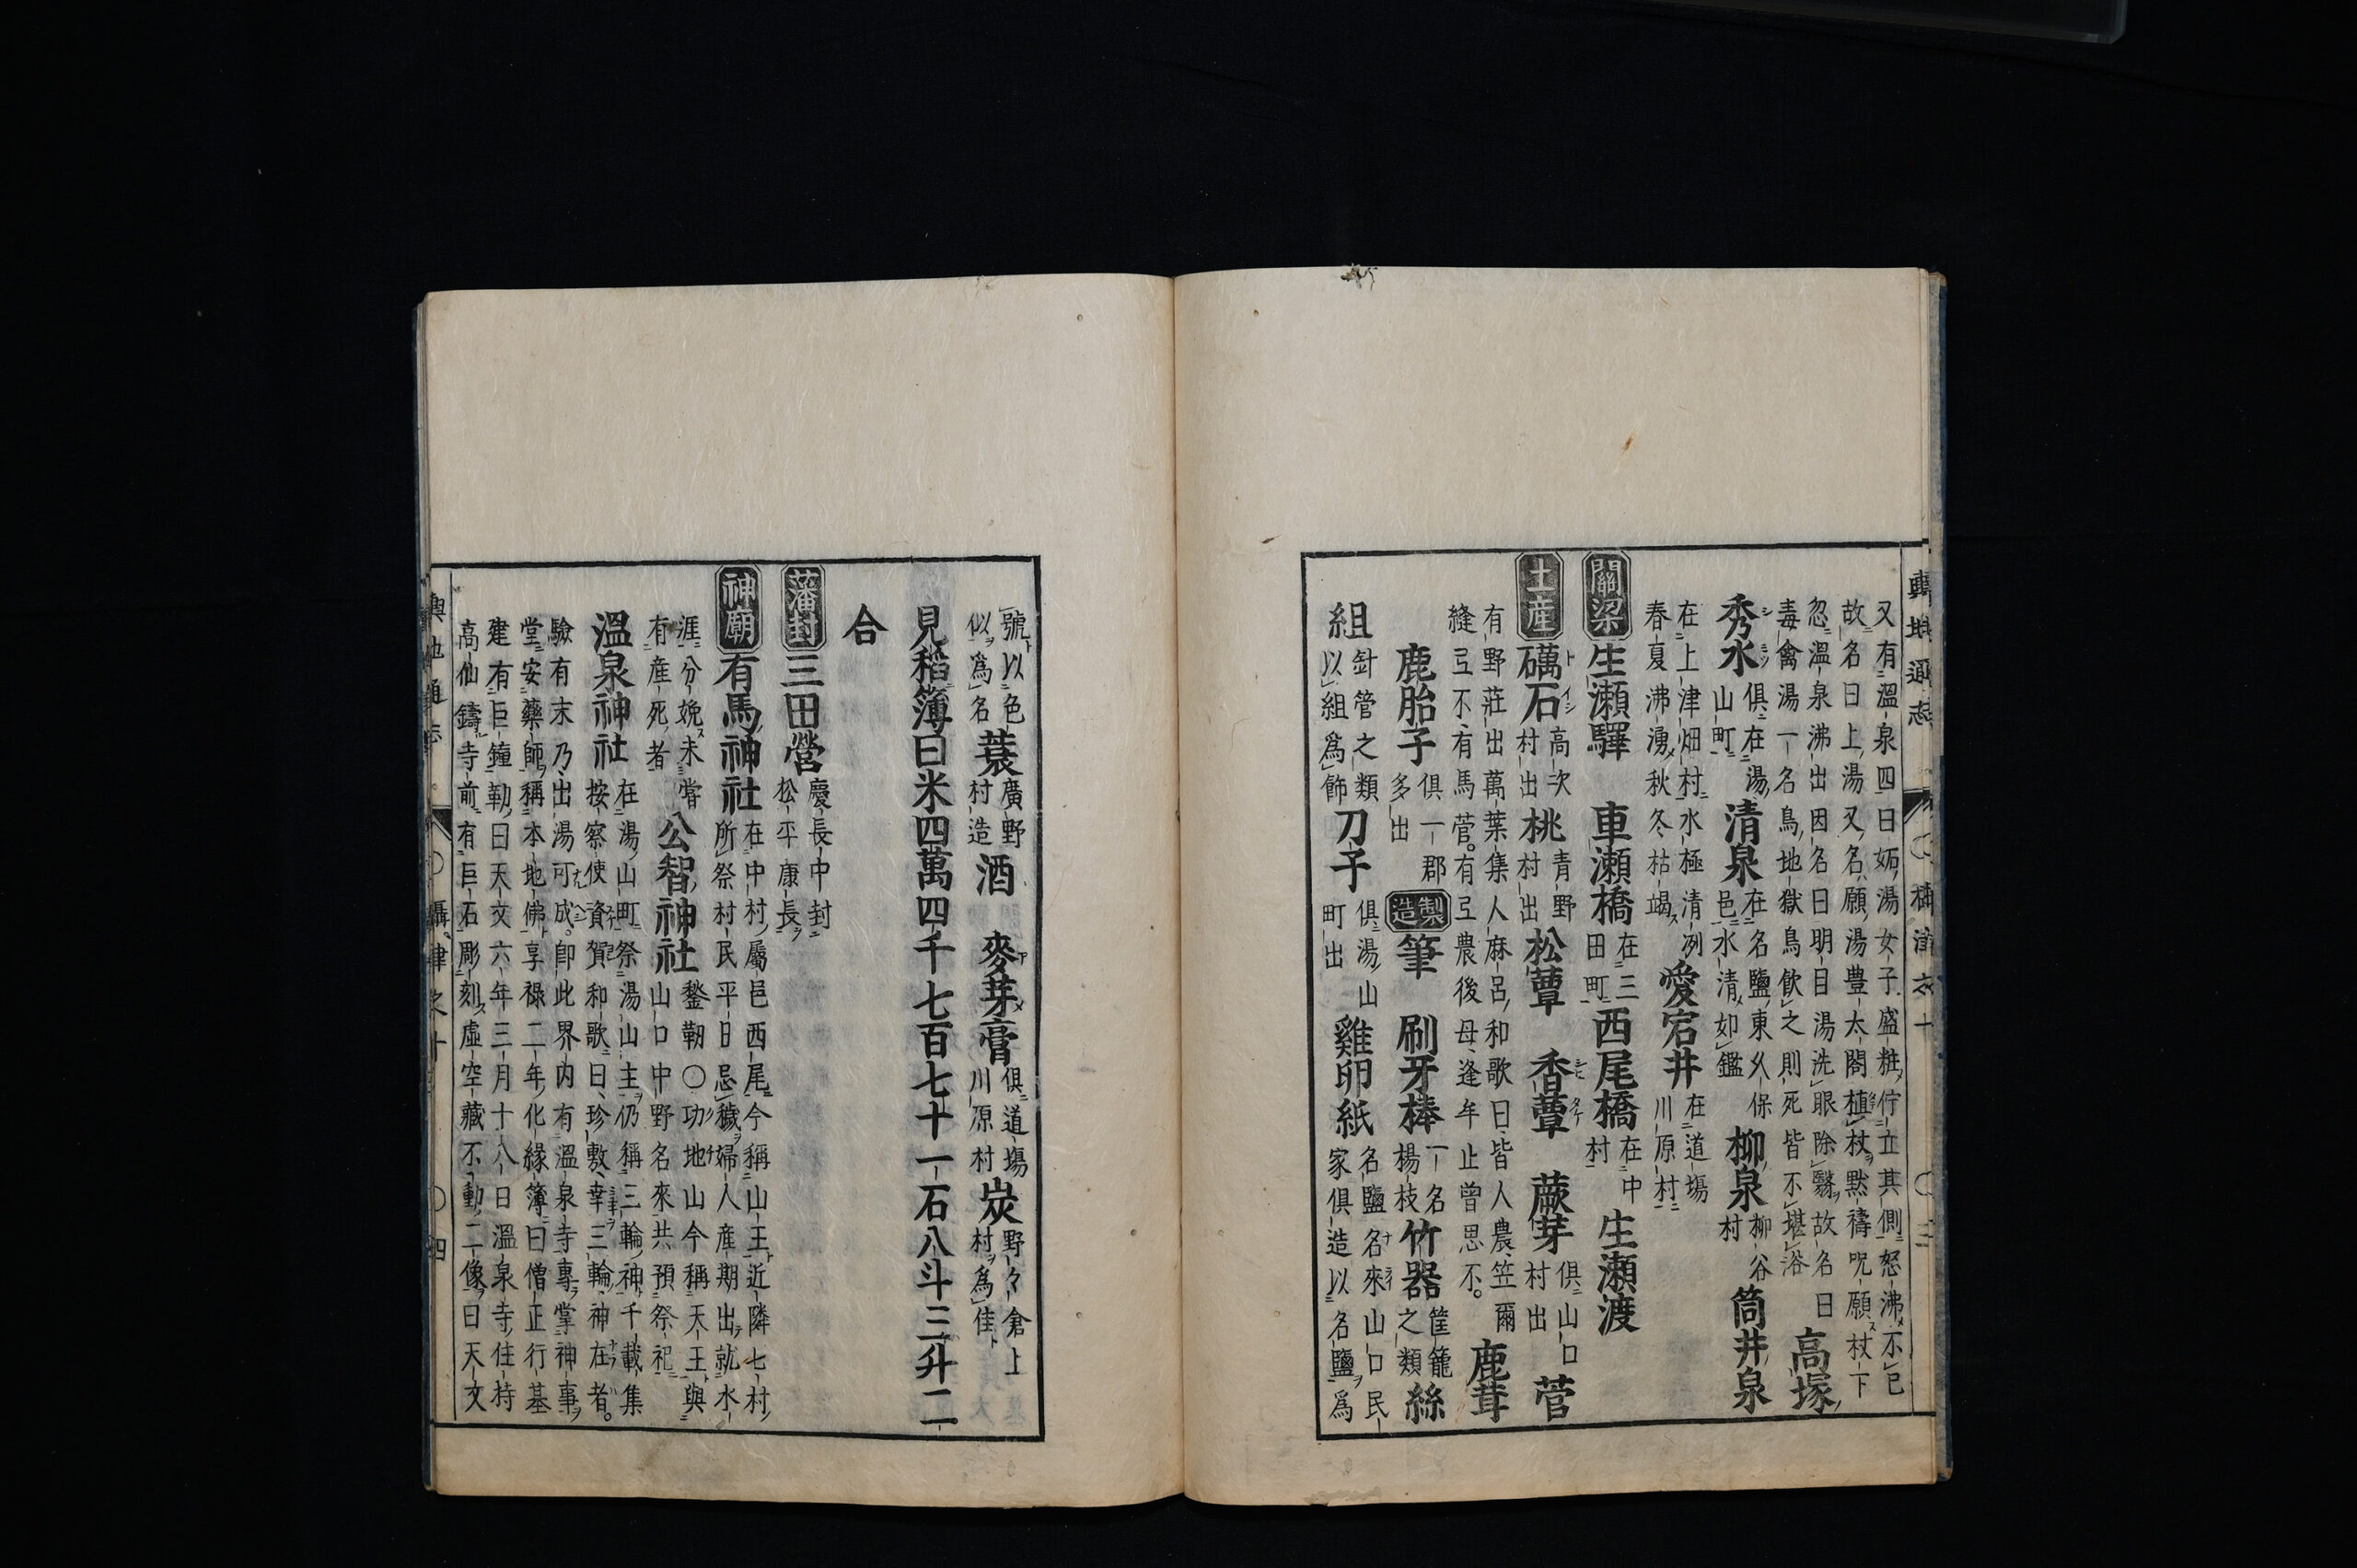 又有溫泉四曰妬湯女子盛粧佇立其側怒沸不已
故名曰上湯又名願湯豊太閤植杖黙禱呪願杖下
忽溫泉沸出因名曰明目湯洗眼除翳故名曰高塚
毒禽湯一名鳥地獄鳥飲之則死皆不堪浴
秀水俱在湯山町 清泉在名鹽東久保邑水清如鑑 柳泉柳谷村 筒井泉
在上津畑村水極清冽春夏沸湧秋冬枯竭 愛宕井在道塲川原村
關梁 生瀬驛 車瀬橋在三田町 西尾橋在中村 生瀬渡
土産 礪石高次村出 桃青野村出 松蕈 香蕈 蕨芽俱山口村出 菅
有野莊出萬葉集人麻呂和歌曰皆人農笠爾縫弖不有馬菅有弖農後母逢年止曾思不 鹿茸
鹿胎子俱一郡多出 製造 筆 刷牙棒一名楊枝 竹器筐籠之類 絲
組針管之類以組爲飾 刀子俱湯山町出 雞卵紙名鹽名來山口民家俱造以名鹽爲
輿地通志 攝津之十 四
號以色似爲名 蓑廣野村造 酒 麥芽膏俱道塲川原村 炭野々倉上村爲佳
見稻簿曰米四萬四千七百七十一石八斗三升二
合
藩封 三田營慶長中封松平康長
神廟 有馬神社在中村屬邑西尾今稱山王近隣七村所祭村民平日忌穢婦人産期出就水
涯分娩未嘗有産死者 公智神社鍫靭〇功地山今稱天王與山口中野名來共預祭祀
溫泉神社在湯山町祭湯山主仍稱三輪神千載集按察使資賀和歌曰珍敷幸三輪神在者
驗有末乃出湯可成卽此界内有溫泉寺專掌神事
堂安藥師稱本地佛享祿二年化緣簿曰僧正行基
建有巨鐘勒曰天文六年三月十八日溫泉寺住持
高仙鑄寺前有巨石彫刻虛空藏不動二像曰天文